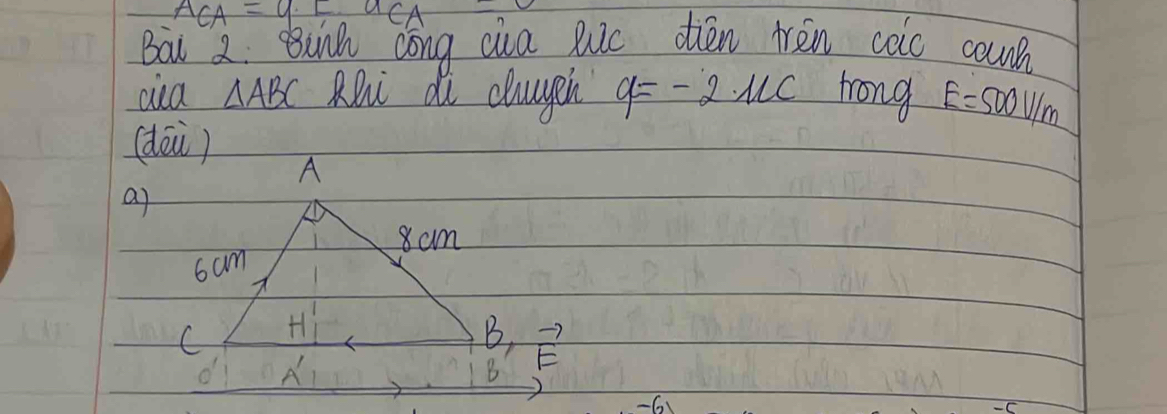 A_CA = q. E. d_CA = 0
Bài 2. Tính công của lực điện trên các cạnh
của △ABC khi di chuyển q = -2.μC trong E = 500 V/m
(đều)
a)
A
6cm
8cm
C
H
B
E
C'
A'
B'